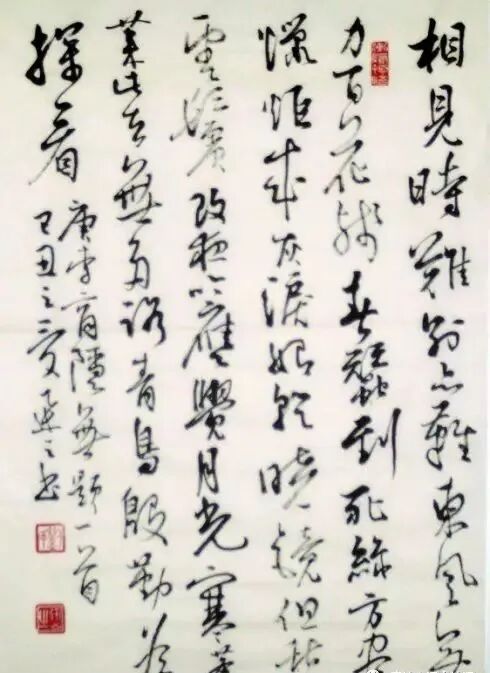 相見時難別亦難東風無
力百花殘春蠶到死絲方盡
蠟炬成灰淚始乾曉鏡但愁
雲鬢改夜吟應覺月光寒蓬
萊此去無多路青鳥殷勤為
探看
唐李商隱無題一首
己丑之夏之書